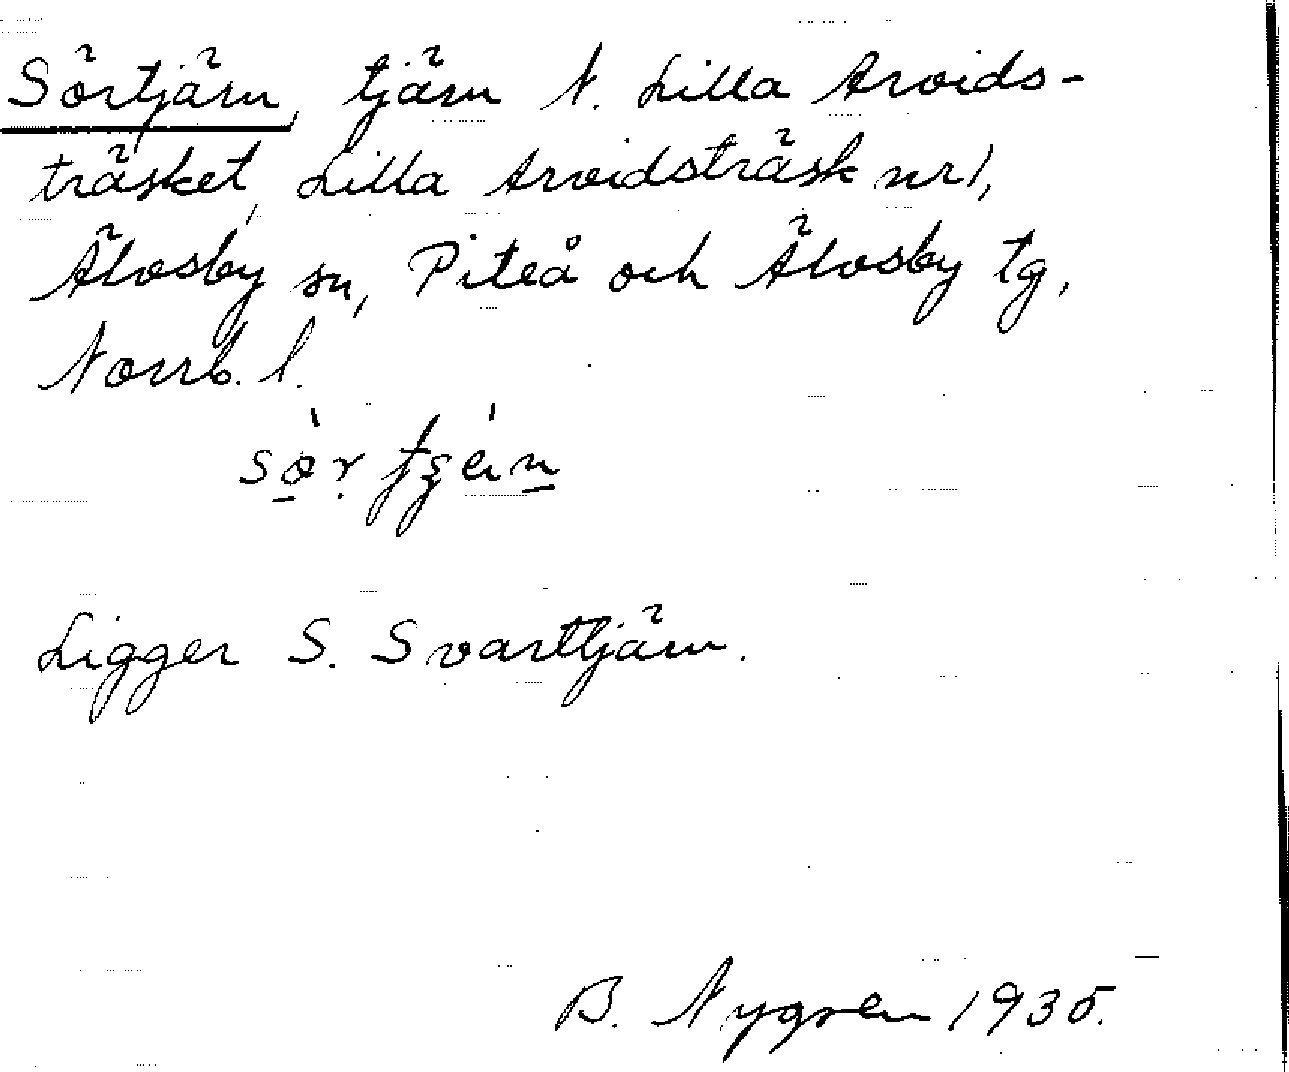 Sörtjärn, tjärn N. Lilla Arvids-
träsket, Lilla Arvidsträsk nr 1,
Älvsby sn, Piteå och Älvsby tg,
Norrb. l.
Ligger S. Svarttjärn.
B. Nygren 1935.